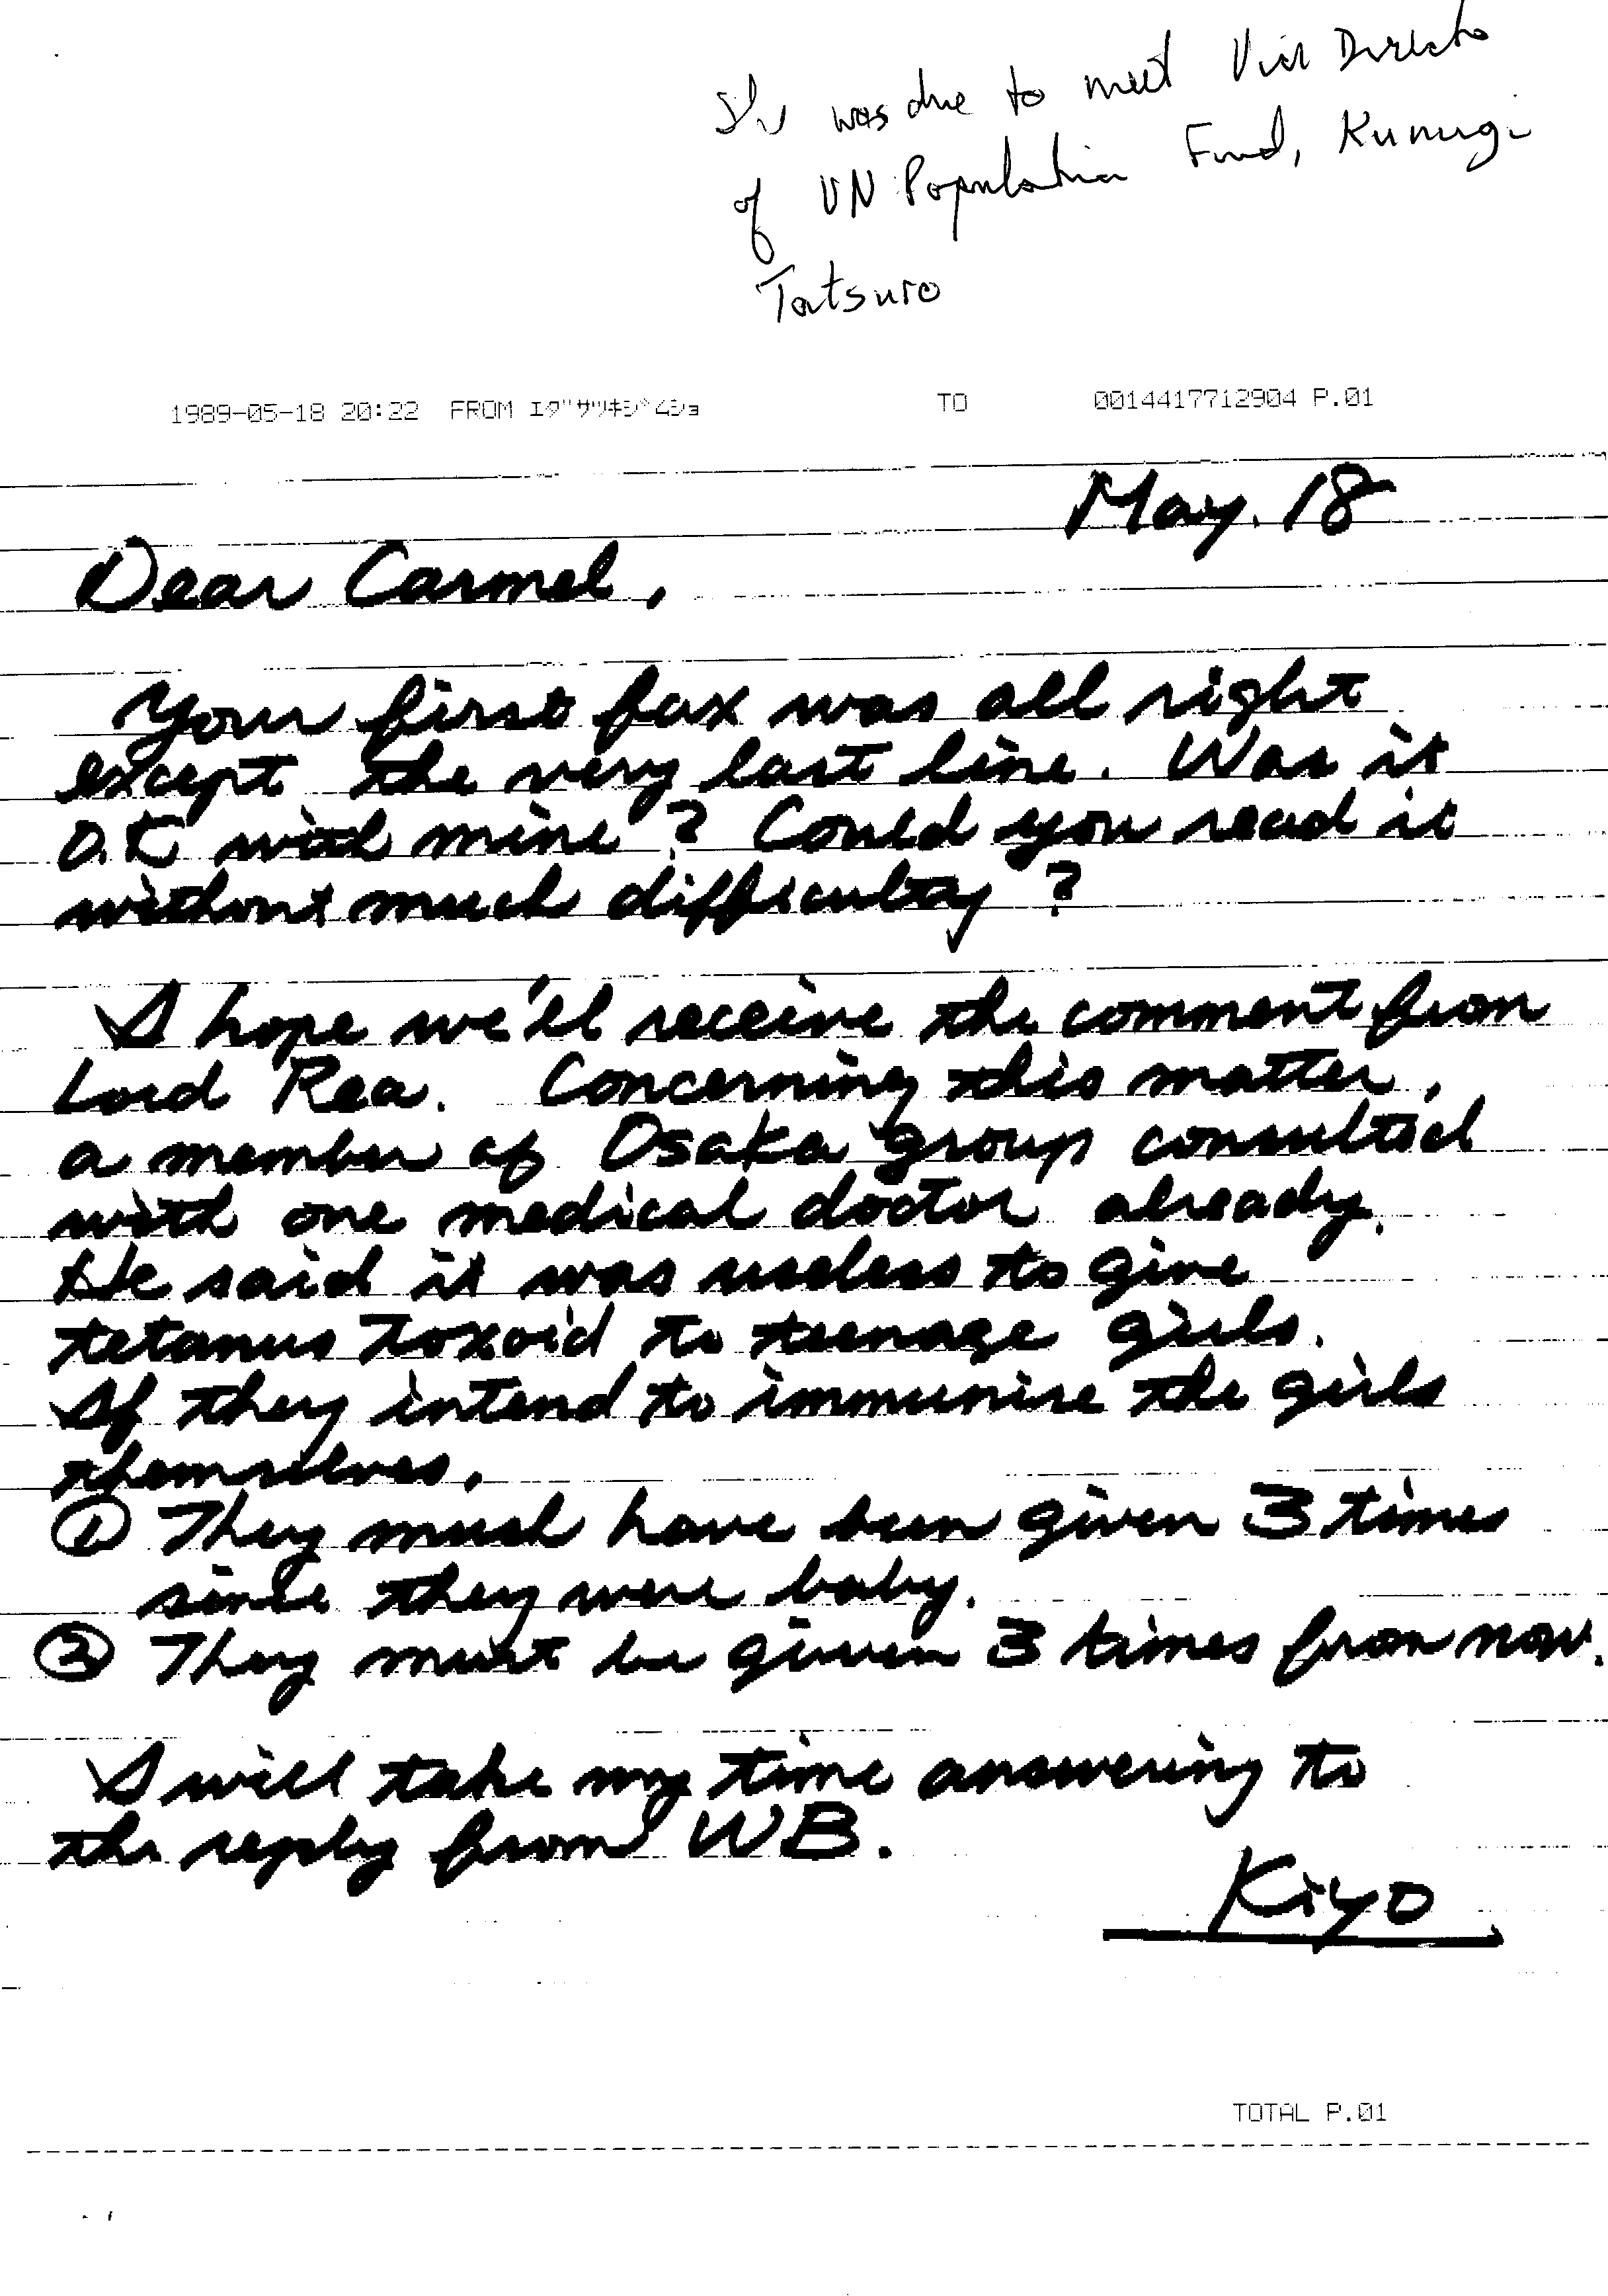 She was due to meet Vice Director
of UN Population Fund, Kunugi
Tatsuro
1989-05-18 20:22 FROM エグサツキジムショ TO 0014417712904 P.01
May. 18
Dear Carmel,
Your first fax was all right
except the very last line. Was it
O.K with mine? Could you read it
without much difficulty?
I hope we'll receive the comment from
Lord Rea. Concerning this matter,
a member of Osaka group consulted
with one medical doctor already.
He said it was useless to give
tetanus toxoid to teenage girls.
If they intend to immunise the girls
themselves.
① They must have been given 3 times
since they were baby.
② They must be given 3 times from now.
I will take my time answering to
the reply from WB.
Kiyo
TOTAL P.01